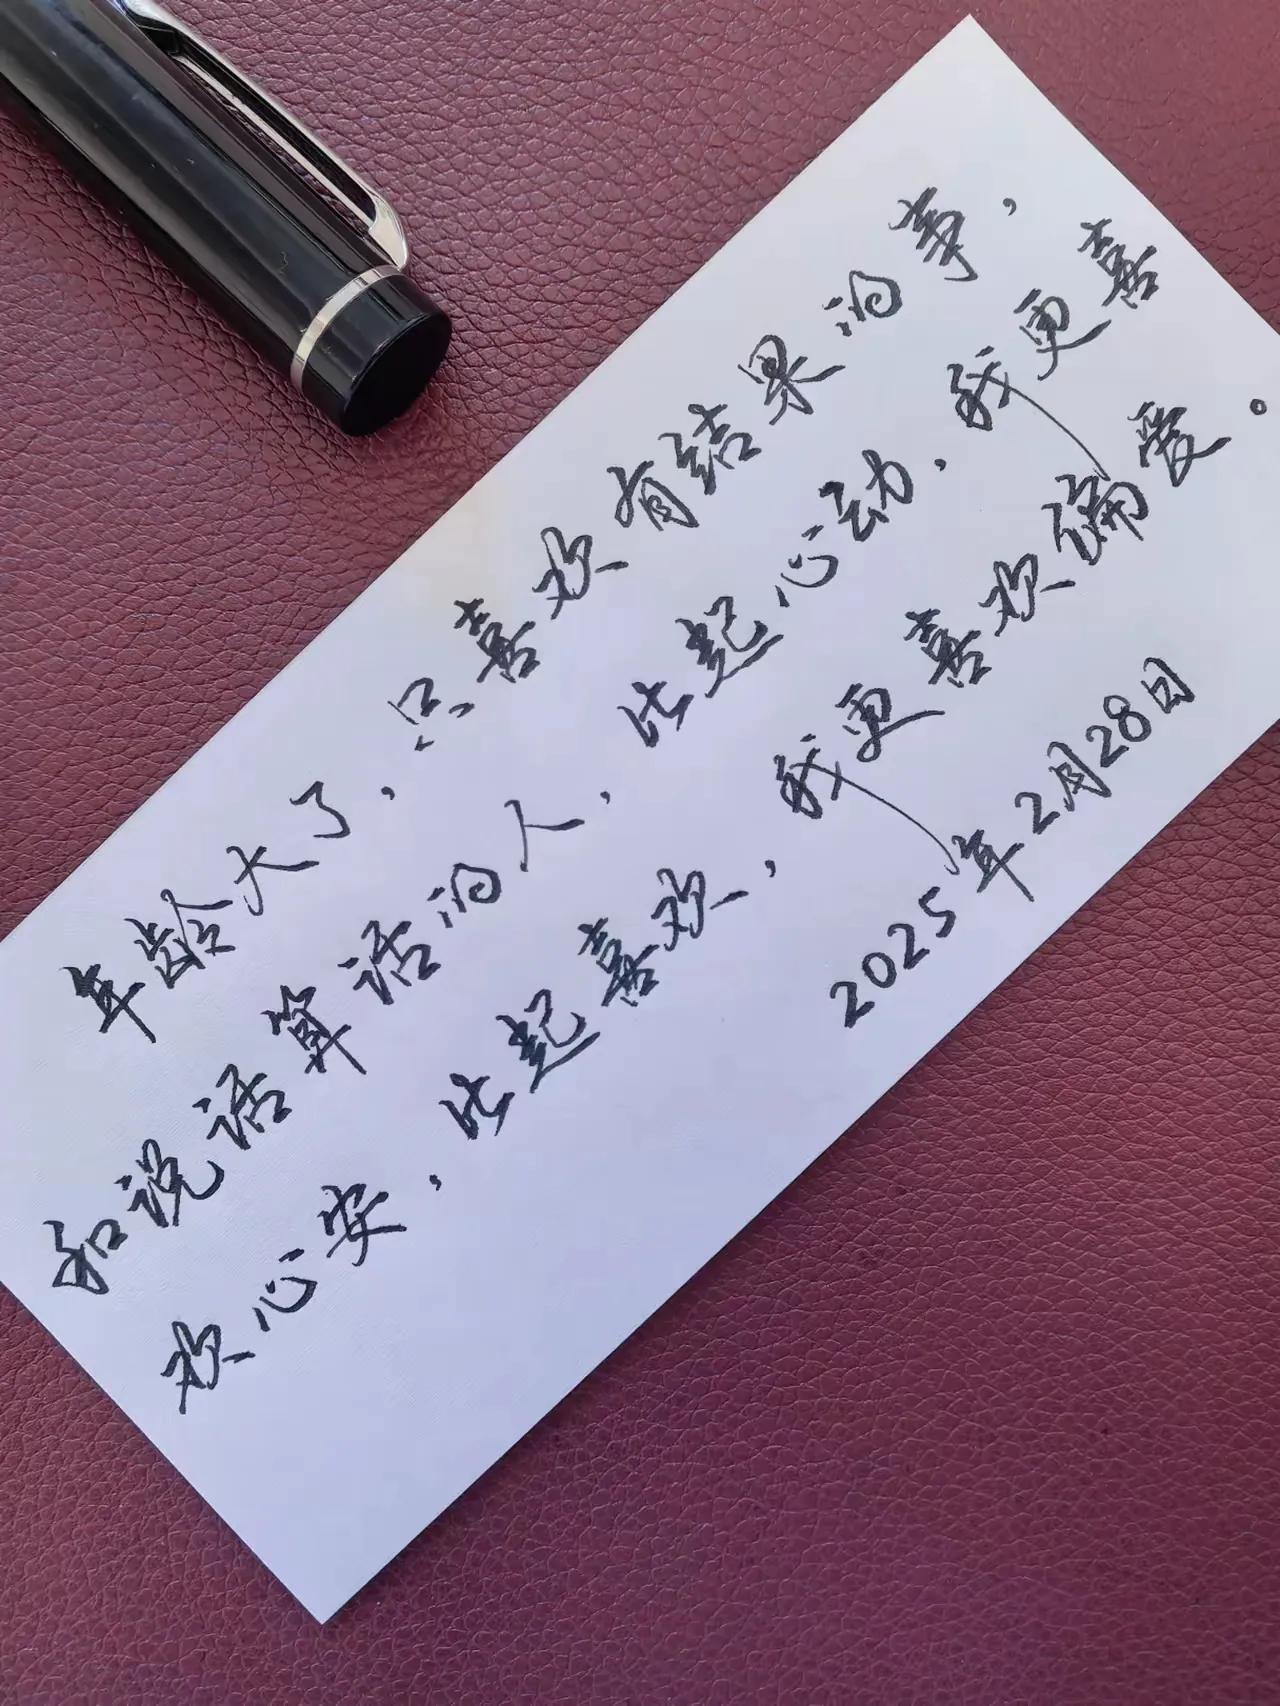 年龄大了，只喜欢有结果的事，
和说话算话的人，比起心动，我更喜
欢心安，比起喜欢，我更喜欢偏爱。
2025年2月28日